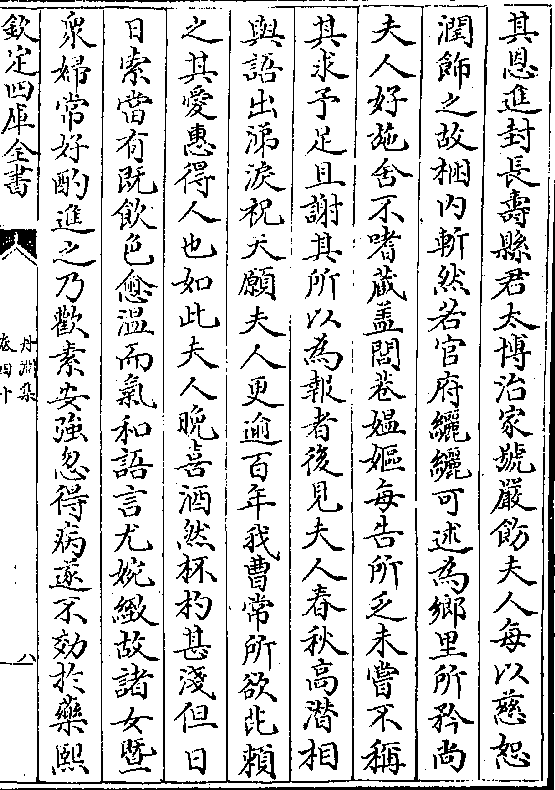 其恩進封長壽縣君太博治家號嚴飭夫人每以慈恕
潤飾之故梱内斬然若官府纚纚可述為鄉里所矜尚
夫人好施舍不嗜蔵盖閭巷媪嫗每告所乏未嘗不稱
其求予足且謝其所以為報者後見夫人春秋高潜相
與語出涕淚祝天願夫人更逾百年我曹常所欲此頼
之其愛惠得人也如此夫人晩喜酒然杯杓甚淺但日
日索當有既飲色愈温而氣和語言尤婉緻故諸女暨
衆婦常好酌進之乃歡素安強忽得病遂不効於藥熙
欽定四庫全書
丹淵集
卷四十
八